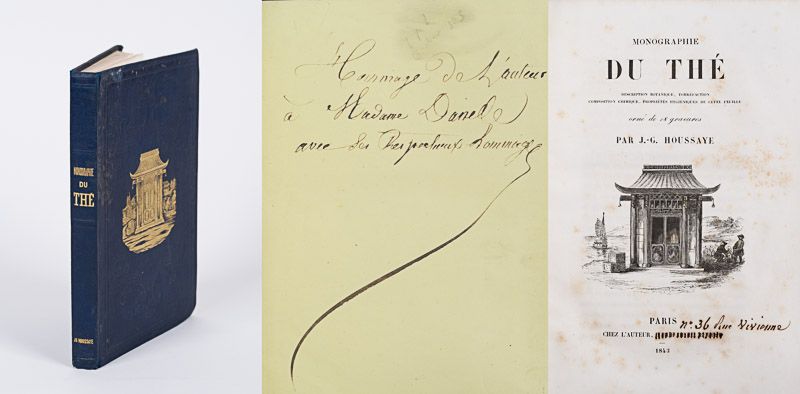 MONOGRAPHIE
DU
THÉ
JG HOUSSAYE
Hommage de L'auteur
à Madame Danell
avec Ses Respectueux hommages
MONOGRAPHIE
DU THÉ
DESCRIPTION BOTANIQUE, TORRÉFACTION
COMPOSITION CHIMIQUE, PROPRIÉTÉS HYGIÉNIQUES DE CETTE FEUILLE
orné de 18 gravures
PAR J.-G. HOUSSAYE
PARIS n.° 36 Rue Vivienne
CHEZ L'AUTEUR,
1843